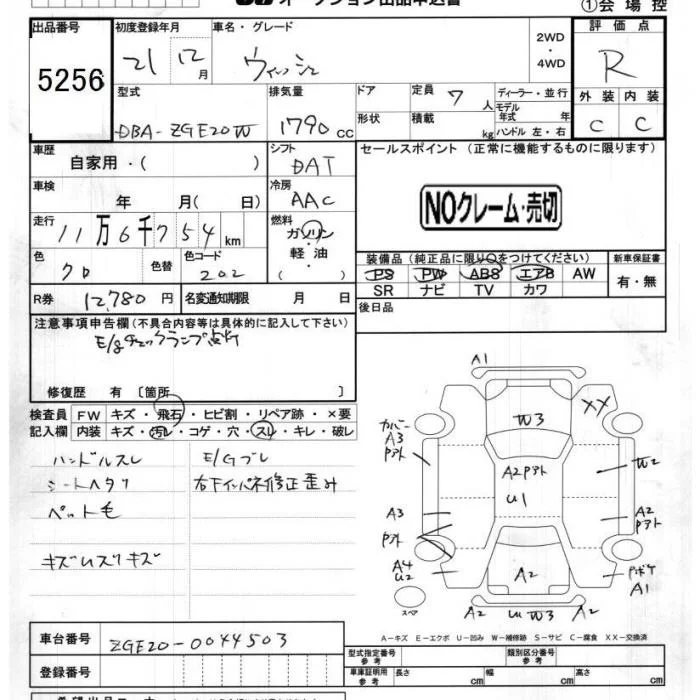 ①会場控
出品番号 初度登録年月 車名・グレード 2WD ・ 4WD 評価点
5256 21 12 月 ウィッシュ R
型式 排気量 ドア 定員 7 人 ディーラー・並行 外装 内装
DBA-ZGE20W 1790 cc 形状 積載 kg モデル年式 年式 ハンドル 左・右 C C
車歴 シフト セールスポイント (正常に機能するものに限ります)
自家用・( ) DAT
車検 冷房
年 月( 日) AAC NOクレーム・売切
走行 燃料
11万6千754km ガソリン
軽油
・( )
色 色替 色コード 装備品 (純正品に限り○をつけてください) 新車保証書
クロ 202 PS PW ABS エアB AW 有・無
SR ナビ TV カワ
R券 12,780 円 名変通知期限 月 日 後日品
注意事項申告欄 (不具合内容等は具体的に記入して下さい)
E/gチェックランプ点灯
修復歴 有 〔箇所 〕
検査員 FW キズ・飛石・ヒビ割・リペア跡・×要
記入欄 内装 キズ・汚レ・コゲ・穴・スレ・キレ・破レ
ハンドルスレ E/Gブレ
シートヘタリ 右下インパネ修正歪み
ペット毛
A1
W3 XX
カバー
A3
Pアト
A2Pアト W2
U1
A3 A2
Pアト Pアト
A4
U2 A2 Pボケ
A1
スペア A2 U W3 A2
A-キズ E-エクボ U-凹み W-補修跡 S-サビ C-腐食 XX-交換済
車台番号 ZGE20-0044503
型式指定番号 参考 類別区分番号 参考
登録番号 車庫証明用 参考 長さ cm 幅 cm 高さ cm